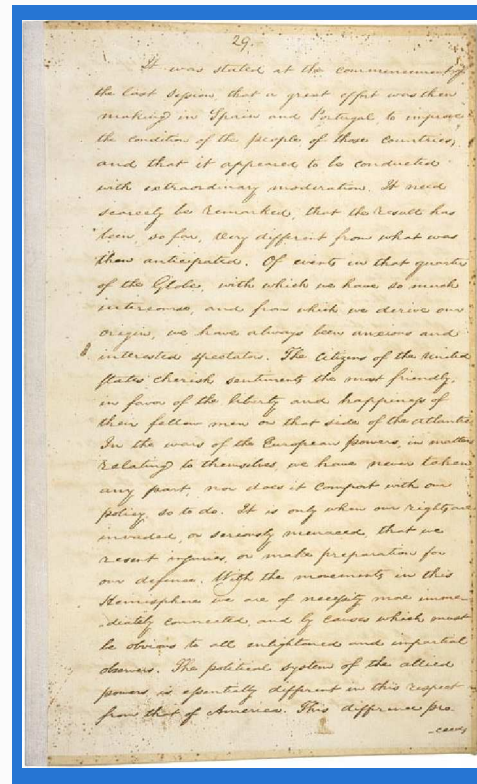 29.
It was stated at the commencement of
the last session that a great effort was then
making in Spain and Portugal to improve
the condition of the people of those countries,
and that it appeared to be conducted
with extraordinary moderation. It need
scarcely be remarked, that the result has
been, so far, very different from what was
then anticipated. Of events in that quarter
of the Globe, with which we have so much
intercourse, and from which we derive our
origin, we have always been anxious and
interested spectators. The citizens of the United
States cherish sentiments the most friendly,
in favor of the liberty and happiness of
their fellow men on that side of the Atlantic.
In the wars of the European powers, in matters
relating to themselves, we have never taken
any part, nor does it comport with our
policy, so to do. It is only when our rights are
invaded, or seriously menaced, that we
resent injuries, or make preparation for
our defense. With the movements in this
Hemisphere we are of necessity more imme-
diately connected, and by causes which must
be obvious to all enlightened and impartial
observers. The political system of the allied
powers, is essentially different in this respect
from that of America. This difference pro
-ceeds